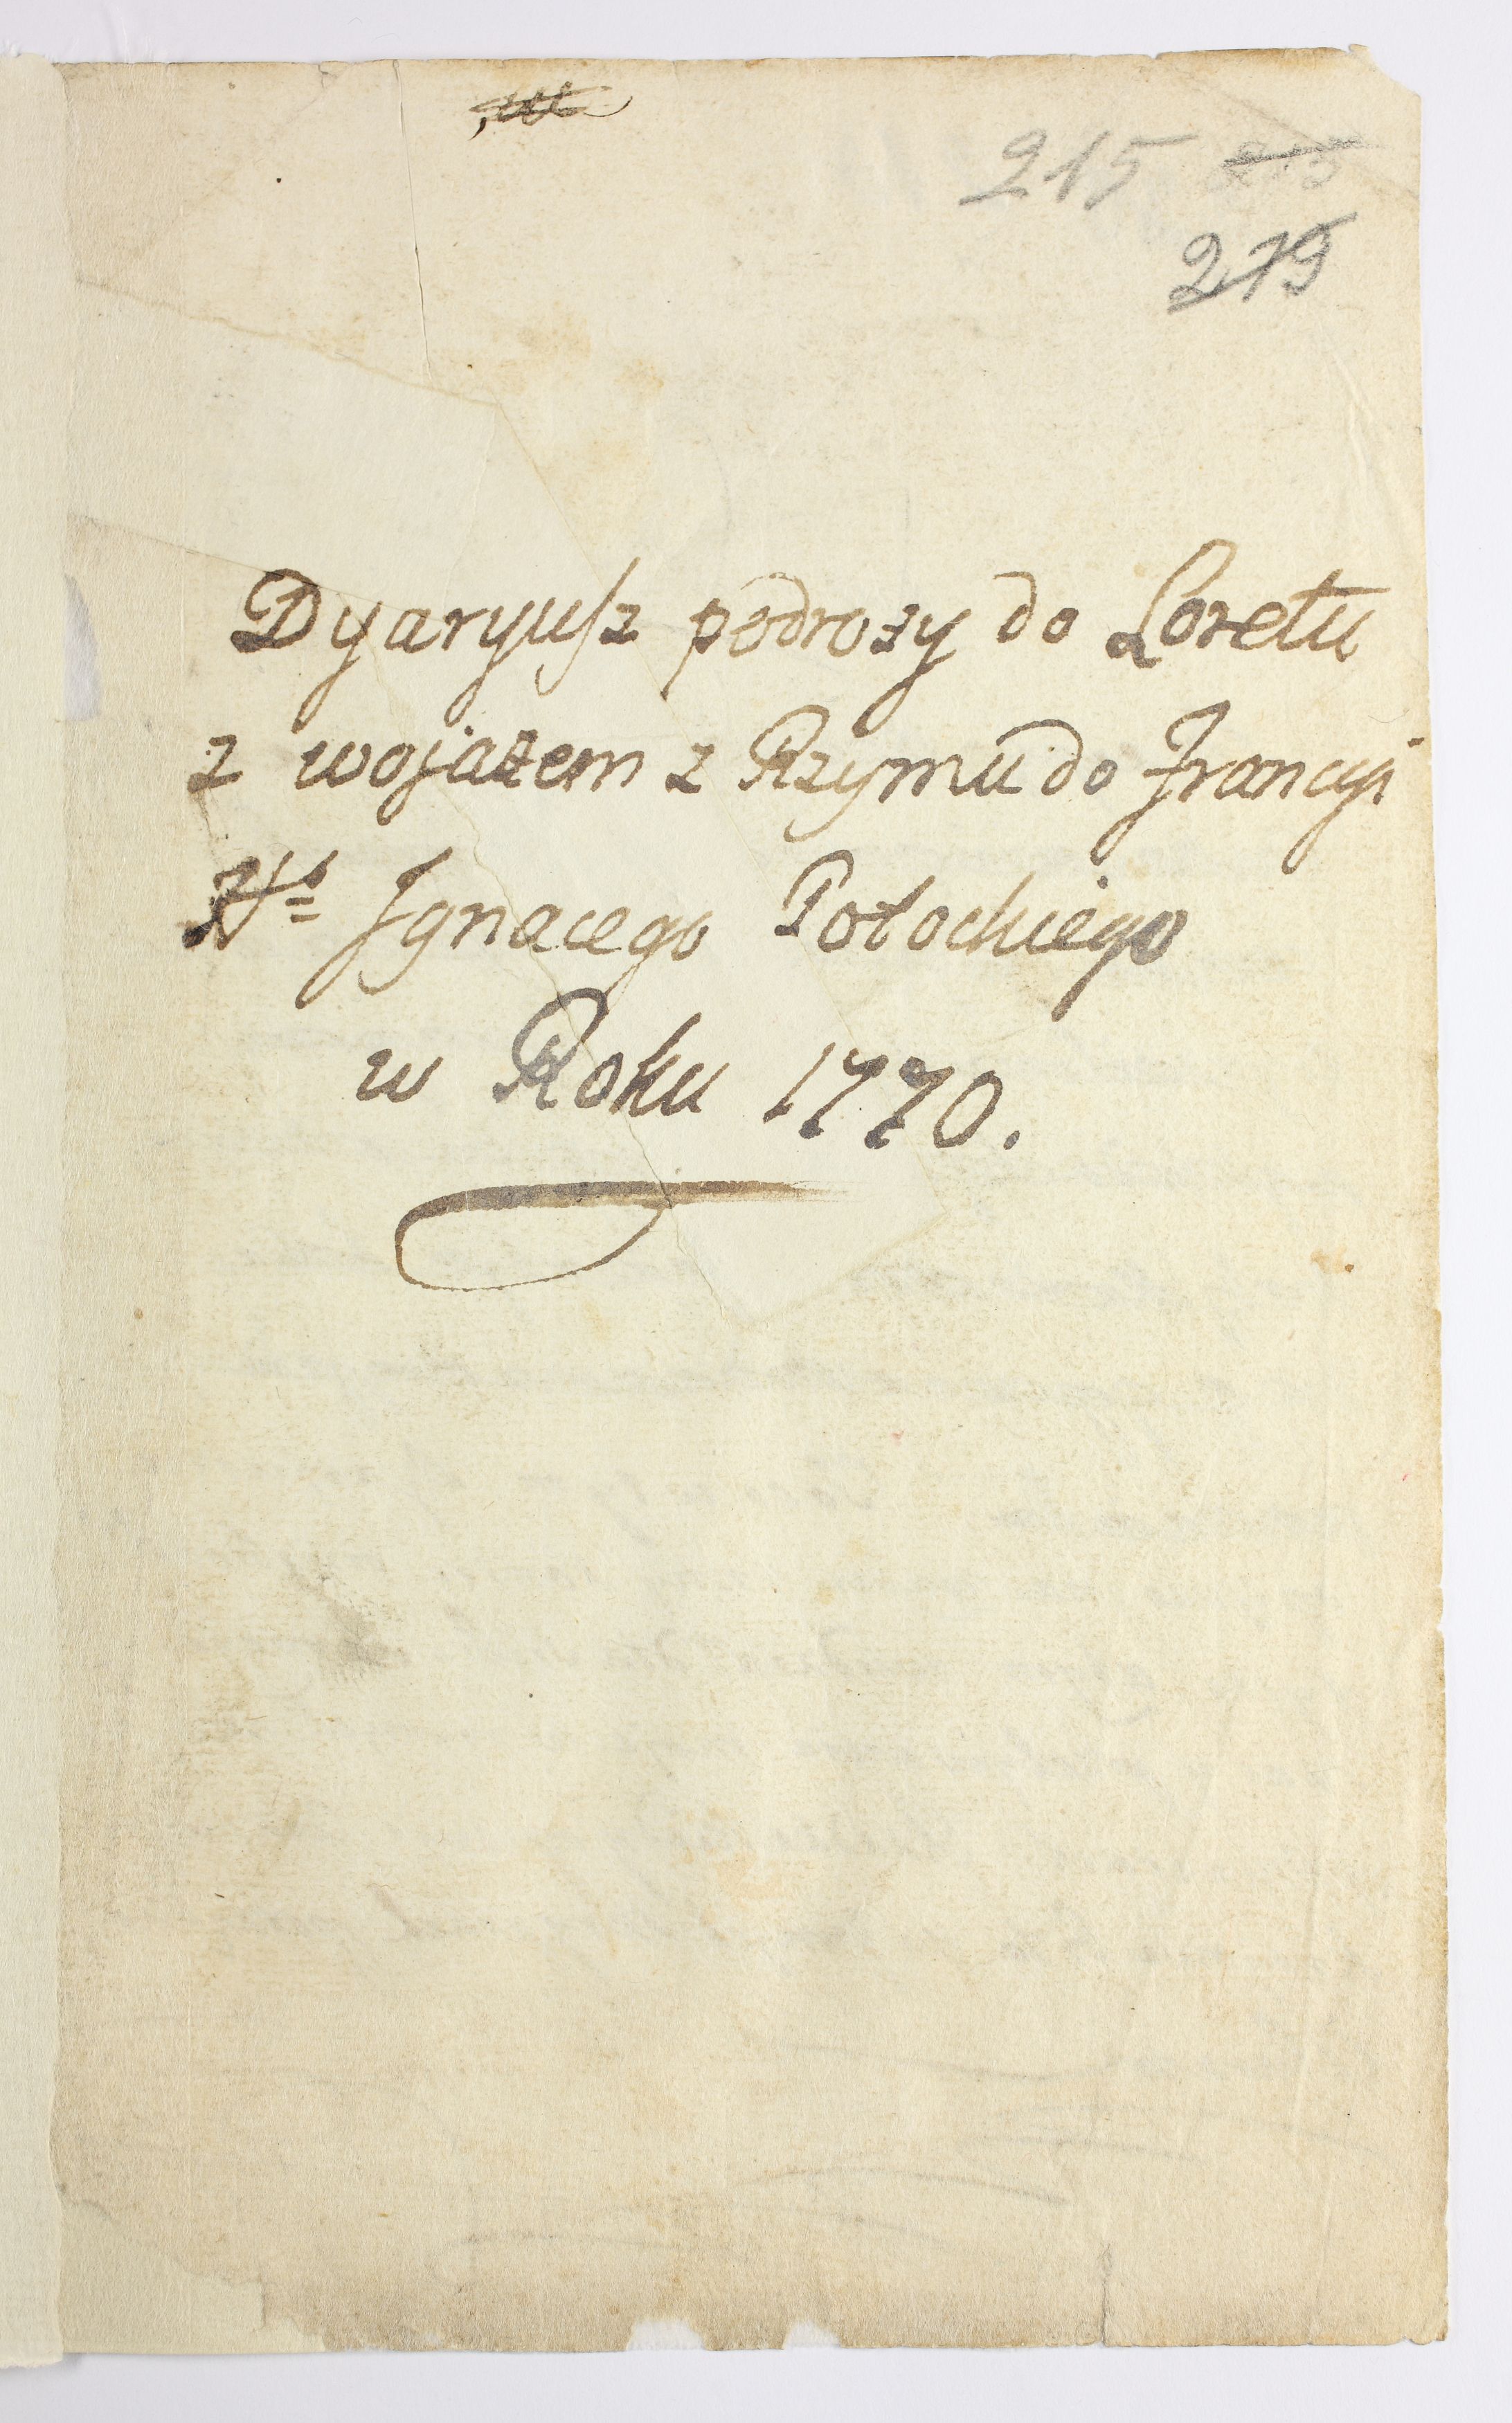 215 215
215
Dyaryusz podrozy do Loretu
z wojażem z Rzymu do Francyi
Ignacego Potockiego
w Roku 1770.